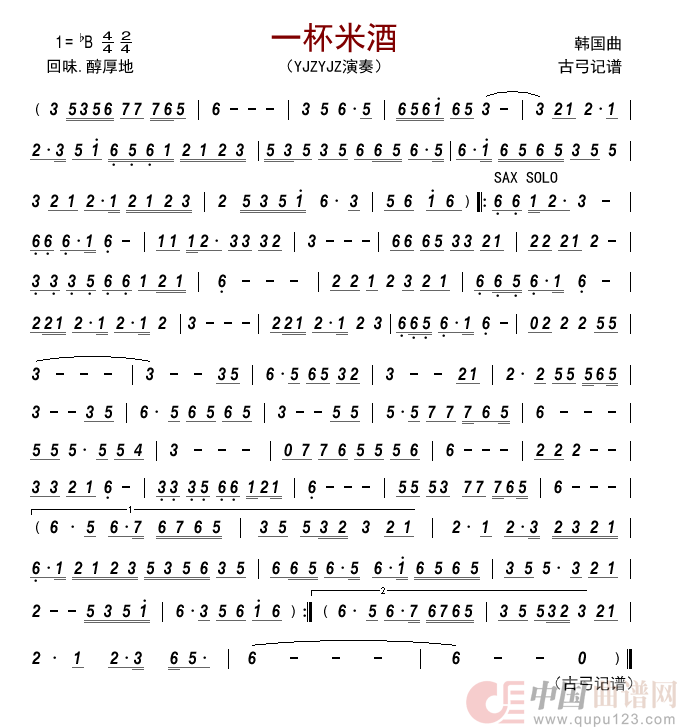 一杯米酒
1=♭B 4/4 2/4
韩国曲
回味.醇厚地
（YJZYJZ演奏）
古弓记谱
( 3 5356 77 765 | 6 - - - | 3 5 6·5 | 6561 65 3 - | 3 21 2·1 |
2·3 51 6561 2123 | 5353566565·6 | 6·1 6565355 |
SAX SOLO
321 2·1 2123 | 2 5351 6·3 | 56 16 ) ‖: 6612·3 - |
666·16 - | 1112·3332 | 3 - - - | 66653321 | 2221 2 - |
3335 66121 | 6 - - - | 2212321 | 6656·16 - |
221 2·1 2·1 2 | 3 - - - | 221 2·1 23 | 6656·16 - | 022255 |
3 - - - | 3 - - 35 | 6·56532 | 3 - - 21 | 2·255565 |
3 - - 35 | 6·56565 | 3 - - 55 | 5·577765 | 6 - - - |
555·554 | 3 - - - | 0776 5556 | 6 - - - | 222 - |
33216 - | 33 35 66 121 | 6 - - - | 5553 77 765 | 6 - - - |
1
( 6·5 6·7 6765 | 35 532 3 21 | 2·1 2·3 2321 |
6·1 2123 535635 | 665 6·5 6·1 6565 | 355·321 |
2 - - 5351 | 6·3561 6 ) :‖ ( 6·5 6·7 6765 | 35 532 3 21 |
2
2·1 2·3 65· | 6 - - - | 6 - - 0 ) ‖
（古弓记谱）
中国曲谱网
www.qupu123.com